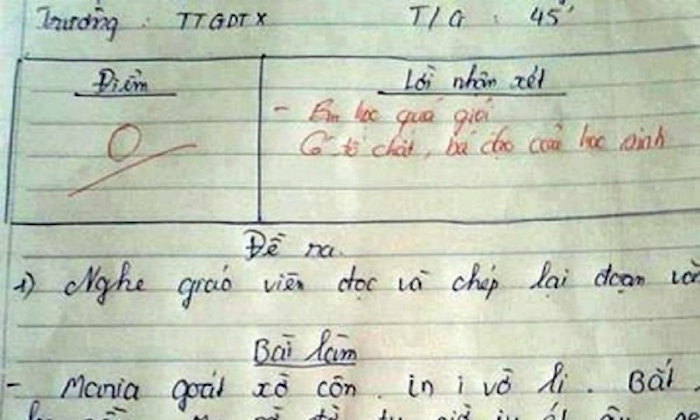 Trường : TTGDTX T/G : 45'
Điểm
Lời nhận xét
0
- Em học quá giỏi
Có tố chất, bá đạo của học sinh
Đề ra.
1) Nghe giáo viên đọc và chép lại đoạn văn
Bài làm
- Mania goát xờ côn. in i vờ li. Bất